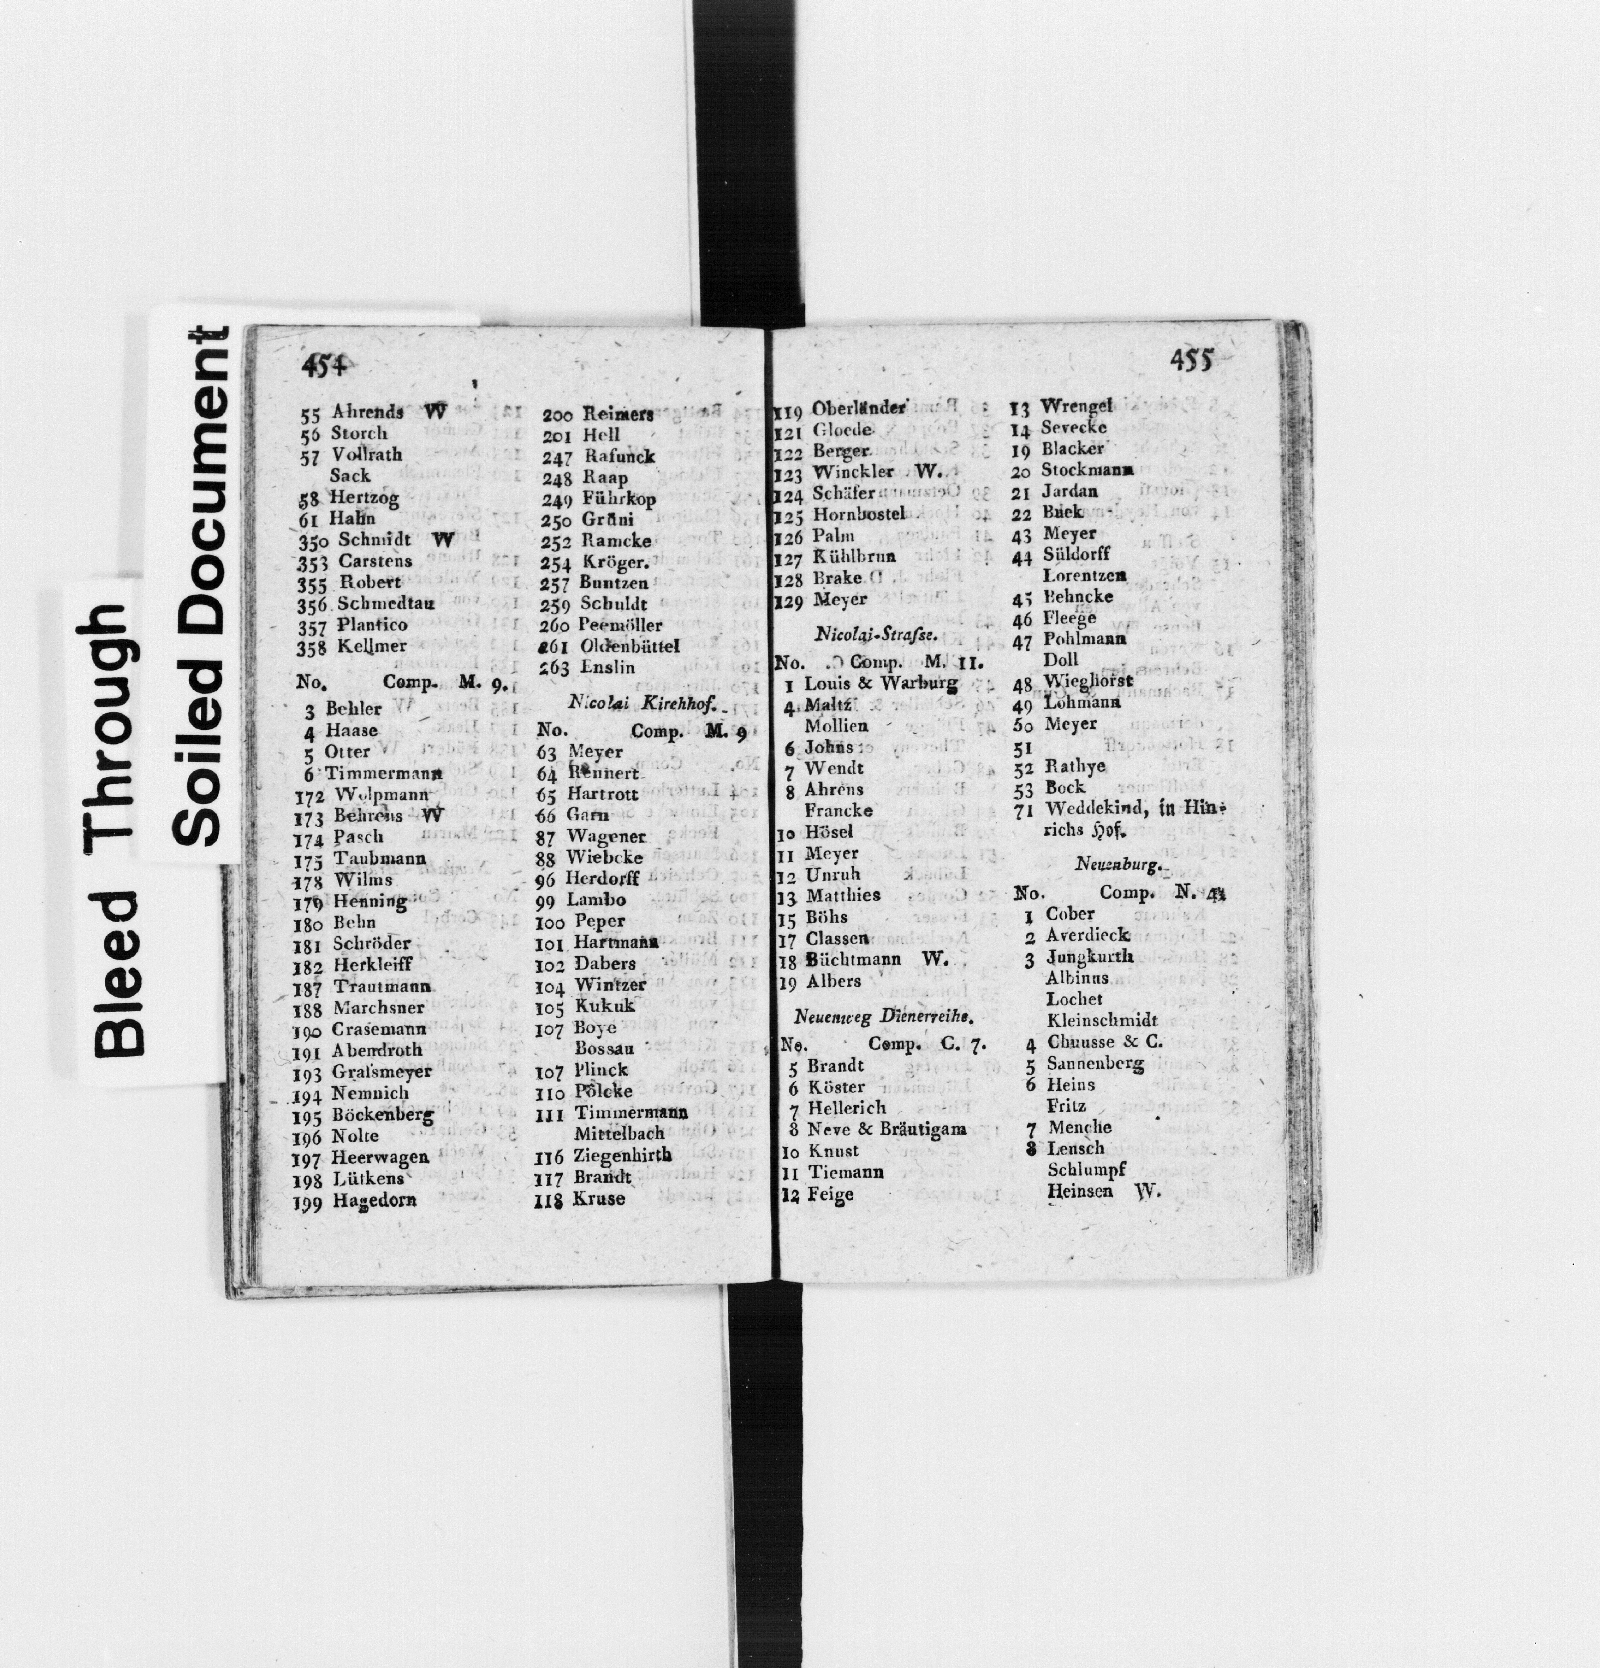 Bleed Through
Soiled Document
454
55 Ahrends W
56 Storch
57 Vollrath
Sack
58 Hertzog
61 Hahn
350 Schmidt W
353 Carstens
355 Robert
356 Schmedtau
357 Plantico
358 Kellmer
No. Comp. M. 9.
3 Behler
4 Haase
5 Otter
6 Timmermann
172 Wolpmann
173 Behrens W
174 Pasch
175 Taubmann
178 Wilms
179 Henning
180 Behn
181 Schröder
182 Herkleiff
187 Trautmann
188 Marchsner
190 Crasemann
191 Abendroth
193 Grafsmeyer
194 Nemnich
195 Böckenberg
196 Nolte
197 Heerwagen
198 Lütkens
199 Hagedorn
200 Reimers
201 Hell
247 Rafunck
248 Raap
249 Führkop
250 Gräni
252 Ramcke
254 Kröger.
257 Buntzen
259 Schuldt
260 Peemöller
261 Oldenbüttel
263 Enslin
Nicolai Kirchhof.
No. Comp. M. 9
63 Meyer
64 Rennert
65 Hartrott
66 Garn
87 Wagener
88 Wiebcke
96 Herdorff
99 Lambo
100 Peper
101 Hartmann
102 Dabers
104 Wintzer
105 Kukuk
107 Boye
Bossau
107 Plinck
110 Pölcke
111 Timmermann
Mittelbach
116 Ziegenhirth
117 Brandt
118 Kruse
455
119 Oberländer
121 Gloede
122 Berger
123 Winckler W.
124 Schäfer
125 Hornbostel
126 Palm
127 Kühlbrun
128 Brake
129 Meyer
Nicolai-Strafse.
No. Comp. M. 11.
1 Louis & Warburg
4 Maltz
Mollien
6 Johns
7 Wendt
8 Ahrens
Francke
10 Hösel
11 Meyer
12 Unruh
13 Matthies
15 Böhs
17 Classen
18 Büchtmann W.
19 Albers
Neuenweg Dienerreihe.
No. Comp. C. 7.
5 Brandt
6 Köster
7 Hellerich
8 Neve & Bräutigam
10 Knust
11 Tiemann
12 Feige
13 Wrengel
14 Sevecke
19 Blacker
20 Stockmann
21 Jardan
22 Buek
43 Meyer
44 Süldorff
Lorentzen
45 Behncke
46 Fleege
47 Pohlmann
Doll
48 Wieghorst
49 Lohmann
50 Meyer
51
52 Rathye
53 Bock
71 Weddekind, in Hin-
richs Hof.
Neuenburg.
No. Comp. N. 4
1 Cober
2 Averdieck
3 Jungkurth
Albinus
Lochet
Kleinschmidt
4 Chuusse & C.
5 Sannenberg
6 Heins
Fritz
7 Menche
8 Lensch
Schlumpf
Heinsen W.